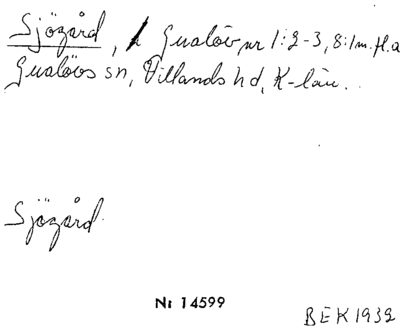 Sjögård, Gualöv nr 1:2-3, 8:1 m.fl.a
Gualövs sn, Villands hd, K-län.
Sjögård.
Nr 14599
BEK 1932